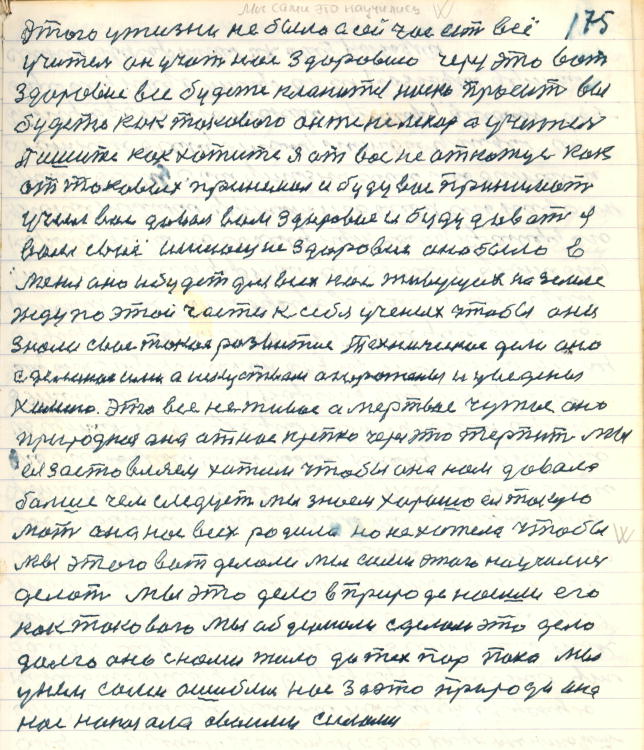 Мы сами это научились
175
этого у жизни не было а сейчас ест всё
учител он учит нас здоровию через это вот
здоровие все будете кланятся низко просит вы
будете как такового он же не лекар а учител
Пишите как хотите я от вас не откажус как
от таковых принимал и буду вас принимат
учил вас давал вам здоровие и буду дават я
вам своё здоровия оно было в
меня оно и будет для всех нас живущих на земле
жду по этой части к себя ученых чтобы они
знали свое такое развитие Техническое дело оно
сделанное ими а искуством и введены
химию. Это все не живое а мертвое чужое оно
природное она от нас крепко через это терпит мы
ея заставляем хотим чтобы она нам давала
болше чем следует мы знаем хорошо ея такую
мат она нас всех родила но не хотела чтобы
мы этого вот делали мы сами этаго научилис
делат мы это дело в природе нашли его
как такового мы сделали это дело
долго оно с нами жило до тех пор пока мы
у нем сами ошиблис нас за это природа она
нас наказала своими силами